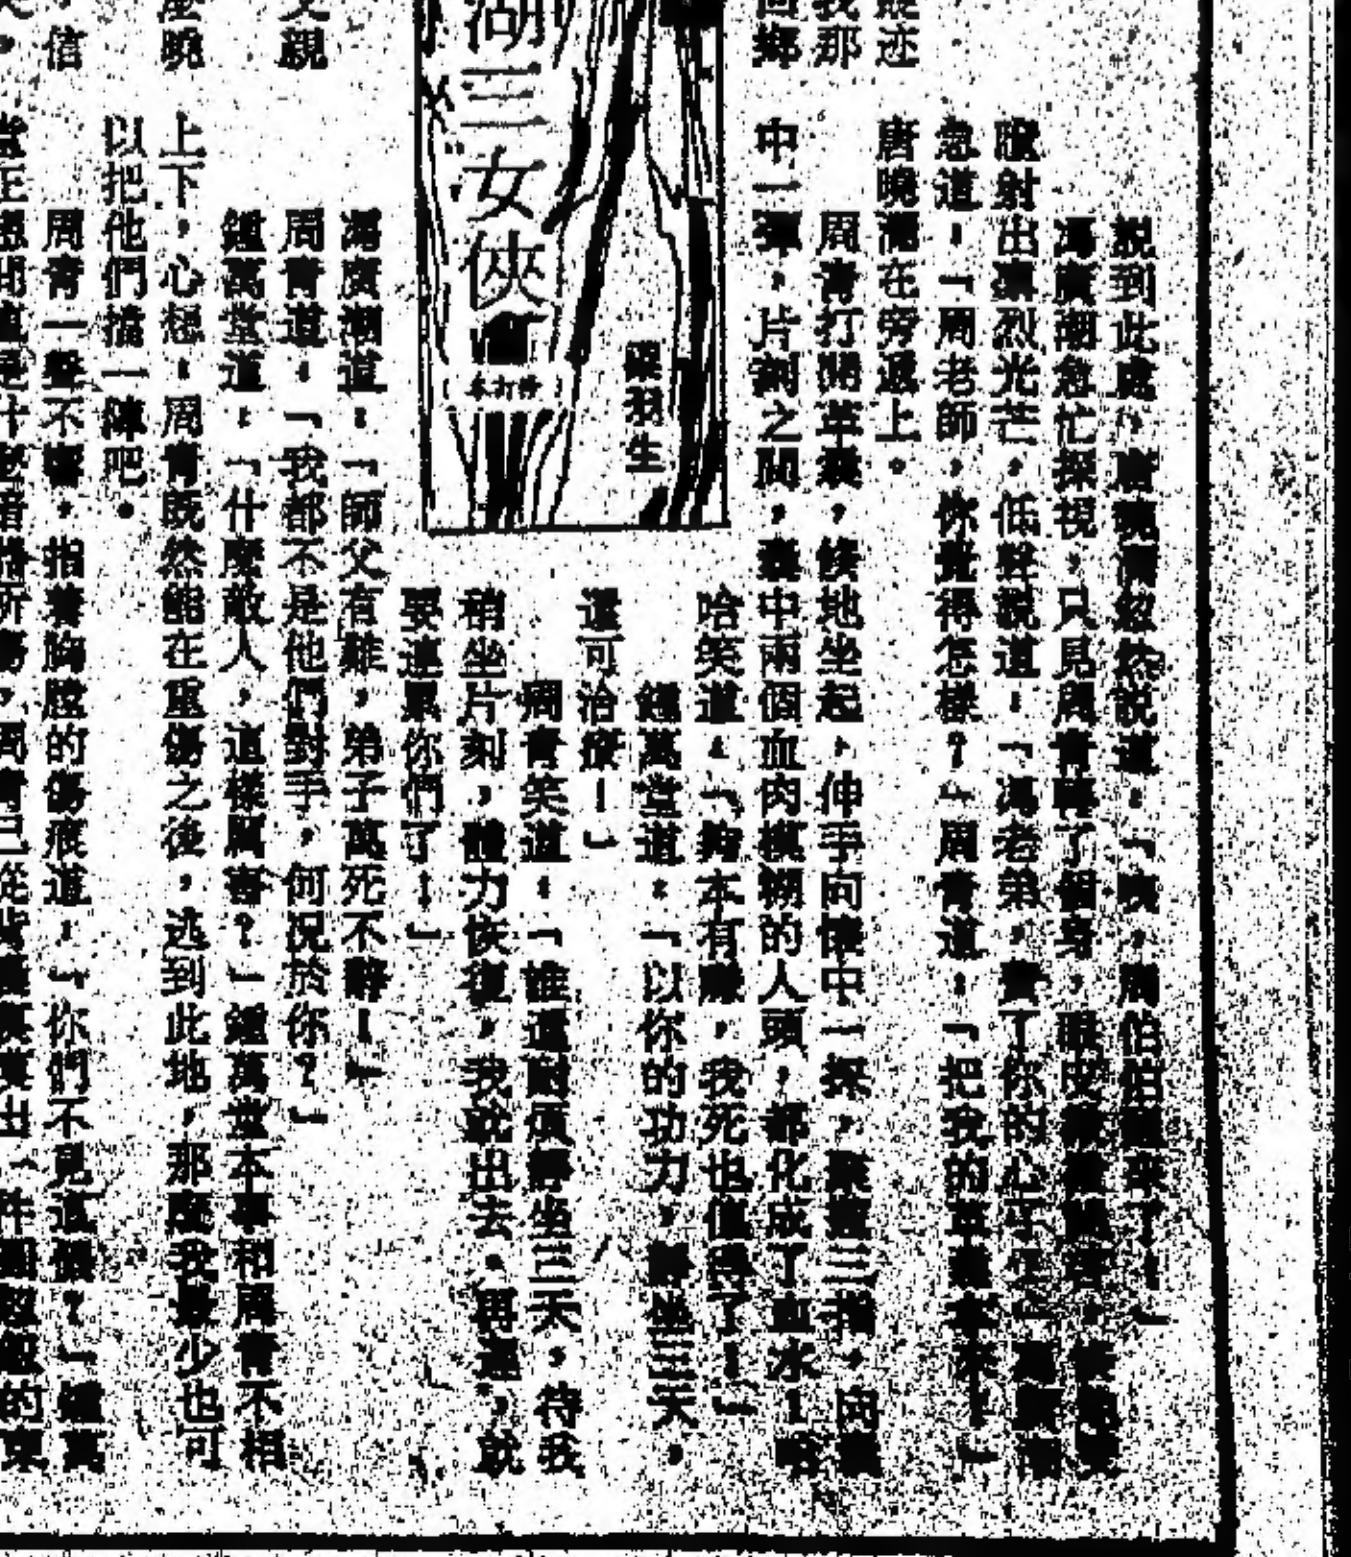 說到此處，唐曉瀾忽然說道：「咦，周伯伯醒來了！」
馮廣潮急忙探視，只見周青轉了個身，眼皮
射出強烈光芒，低聲說道：「馮老弟，費了你的心了！」馮廣潮
急道：「周老師，你覺得怎樣？」周青道：「把我的革囊拿來！」
唐曉瀾在旁遞上。
周青打開革囊，倏地坐起，伸手向懷中一探，聚攏三指，向囊
中一彈，片刻之間，囊中兩個血肉模糊的人頭，都化成了血水！哈
哈笑道：「夠本有賺，我死也值得了！」
鍾萬堂道：「以你的功力，靜坐三天，
還可治療！」
周青笑道：「誰還耐煩靜坐三天，待我
稍坐片刻，體力恢復，我就出去。再遲，就
要連累你們了！」
湖三女俠
梁羽生
馮廣潮道：「師父有難，弟子萬死不辭！」
周青道：「我都不是他們對手，何況於你？」
鍾萬堂道：「什麼敵人，這樣厲害？」鍾萬堂本事和周青不相
上下，心想：周青既然能在重傷之後，逃到此地，那麼我最少也可
以把他們擋一陣吧。
周青一聲不響，指著胸膛的傷痕道：「你們不見這個？」鍾萬
堂正想問這是什麼暗器所傷，周青已從背囊
我那
回鄉
父親
曉
信